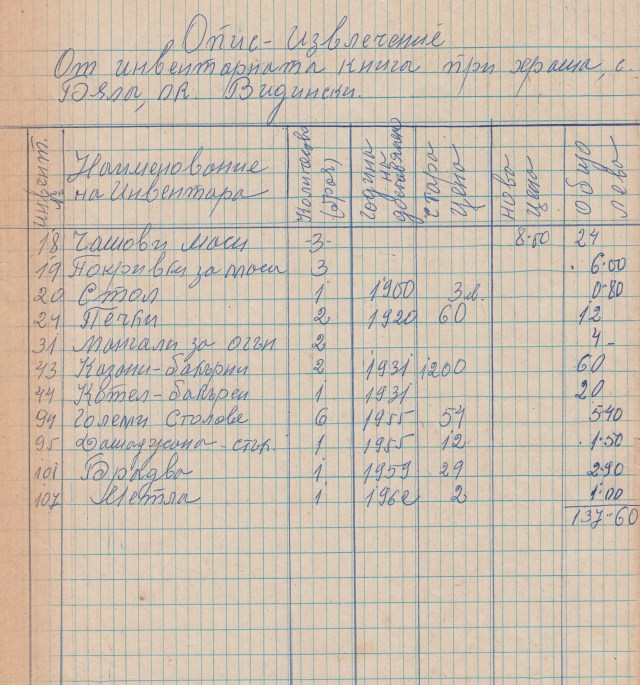 Опис-извлечение
От инвентарната книга при храма, с.
Бяла, ок. Видински.
Инвент. № Наименование на Инвентара Количество (броя) Година на доставяне Стара цена Нова цена Общо лева
18 Чамови маси -3- 8.00 24
19 Покривки за маси 3 6.00
20 Стол 1 1900 3 л. 0.80
24 Печки 2 1920 60 12
31 Мангали за огън 2 4-
43 Казани-бакърни 2 1931 1200 60
44 Котел-бакърен 1 1931 20
94 Големи Столове 6 1955 54 5.40
95 стък. 1 1955 12 1.50
101 Брадва 1 1959 29 2.90
107 Метла 1 1962 2 1.00
137-60